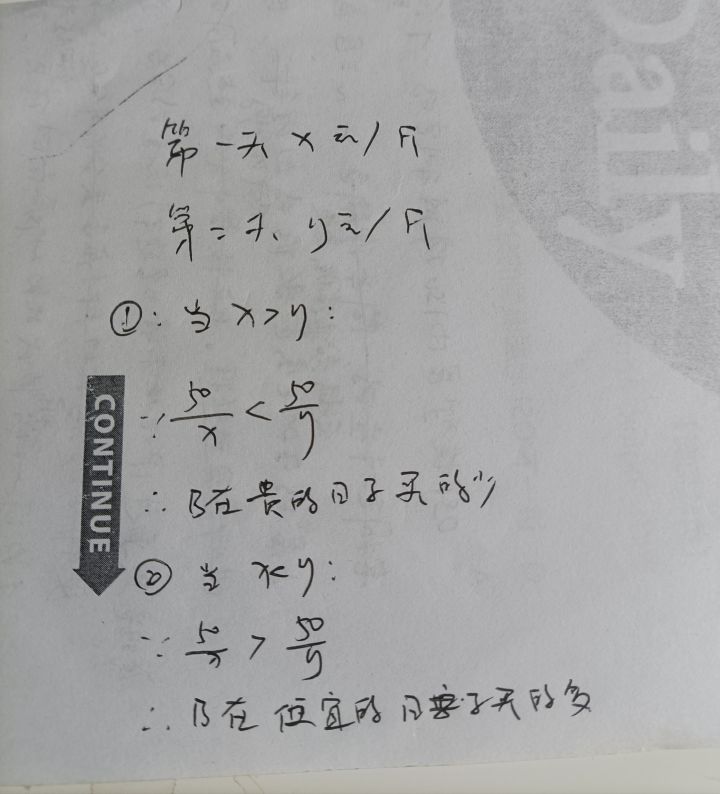 Daily
第一天 x元/斤
第二天、y元/斤
①: 当 x>y:
∵ 50/x < 50/y
CONTINUE
∴ B在贵的日子买的少
② 当 x<y:
∵ 50/x > 50/y
∴ B在便宜的日子买的多